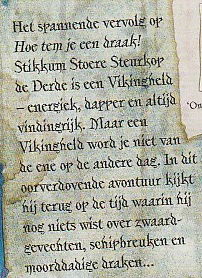 Het spannende vervolg op
Hoe tem je een draak!
Stikkum Stoere Steurkop
de Derde is een Vikingheld
– energiek, dapper en altijd
vindingrijk. Maar een
Vikingheld word je niet van
de ene op de andere dag. In dit
oorverdovende avontuur kijkt
hij terug op de tijd waarin hij
nog niets wist over zwaard-
gevechten, schipbreuken en
moorddadige draken...